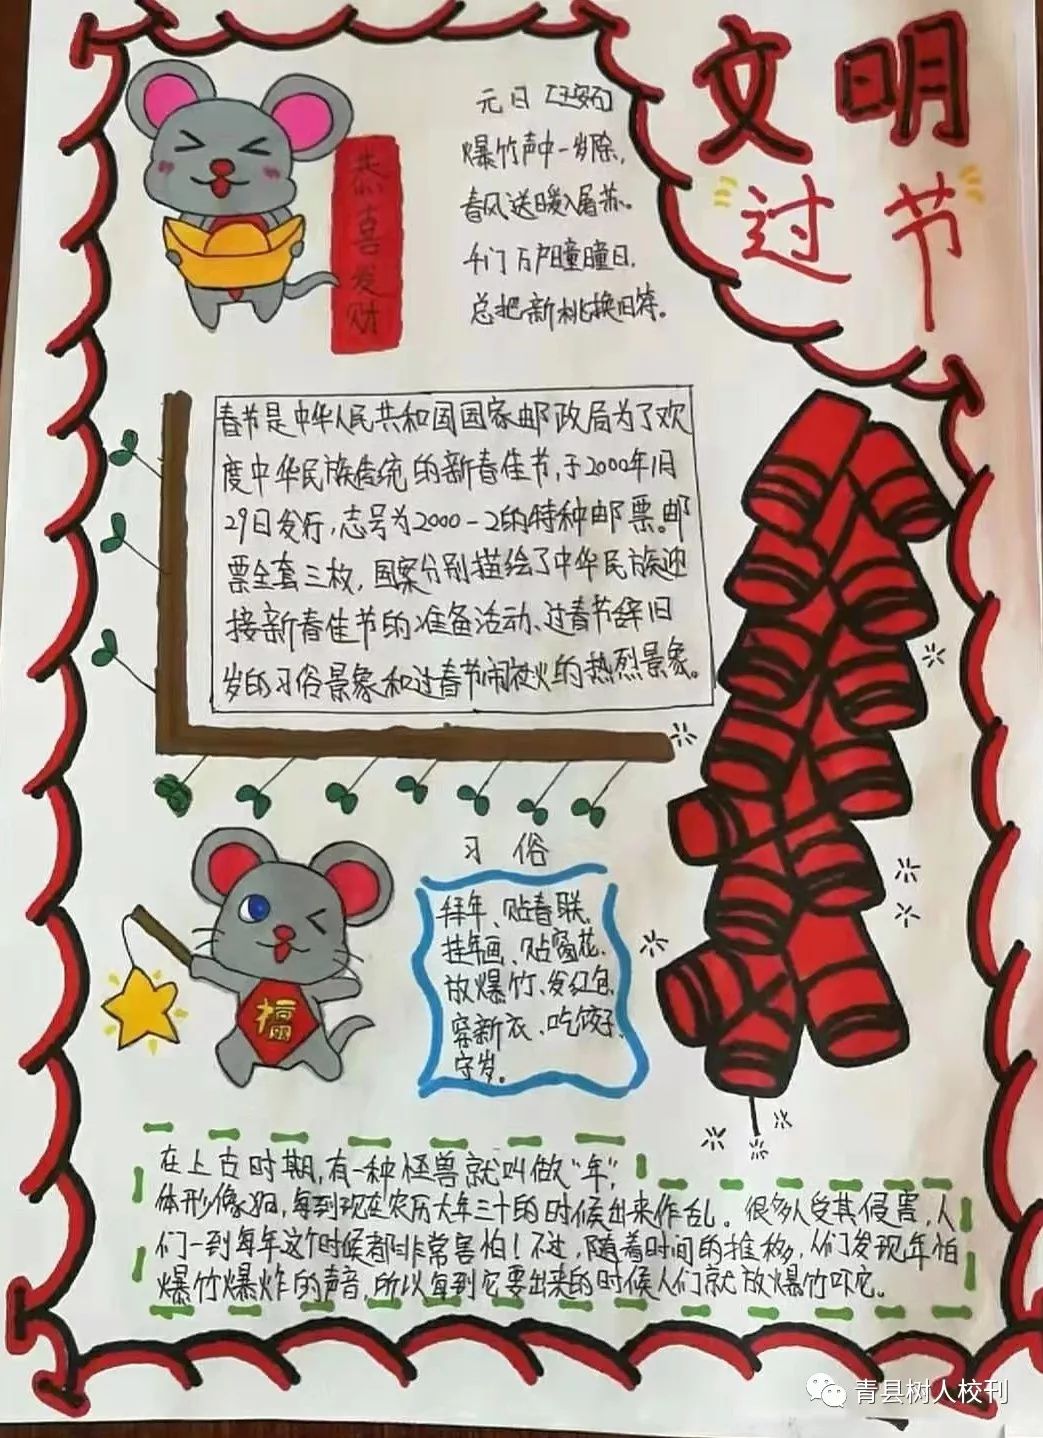 文明
过节
恭喜发财
元日 [王安石]
爆竹声中一岁除,
春风送暖入屠苏。
千门万户曈曈日,
总把新桃换旧符。
春节是中华人民共和国国家邮政局为了欢
度中华民族传统的新春佳节,于2000年1月
29日发行,志号为2000-2的特种邮票。邮
票全套三枚,图案分别描绘了中华民族迎
接新春佳节的准备活动、过春节辞旧
岁的习俗景象和过春节闹夜火的热烈景象。
福
习俗
拜年、贴春联、
挂年画、贴窗花、
放爆竹、发红包、
穿新衣、吃饺子、
守岁。
在上古时期,有一种怪兽就叫做“年”,
体形像狼,每到现在农历大年三十的时候出来作乱。很多人受其侵害,人
们一到每年这个时候都非常害怕!不过,随着时间的推移,人们发现年怕
爆竹爆炸的声音,所以每到它要出来的时候人们就放爆竹吓它。
青县树人校刊